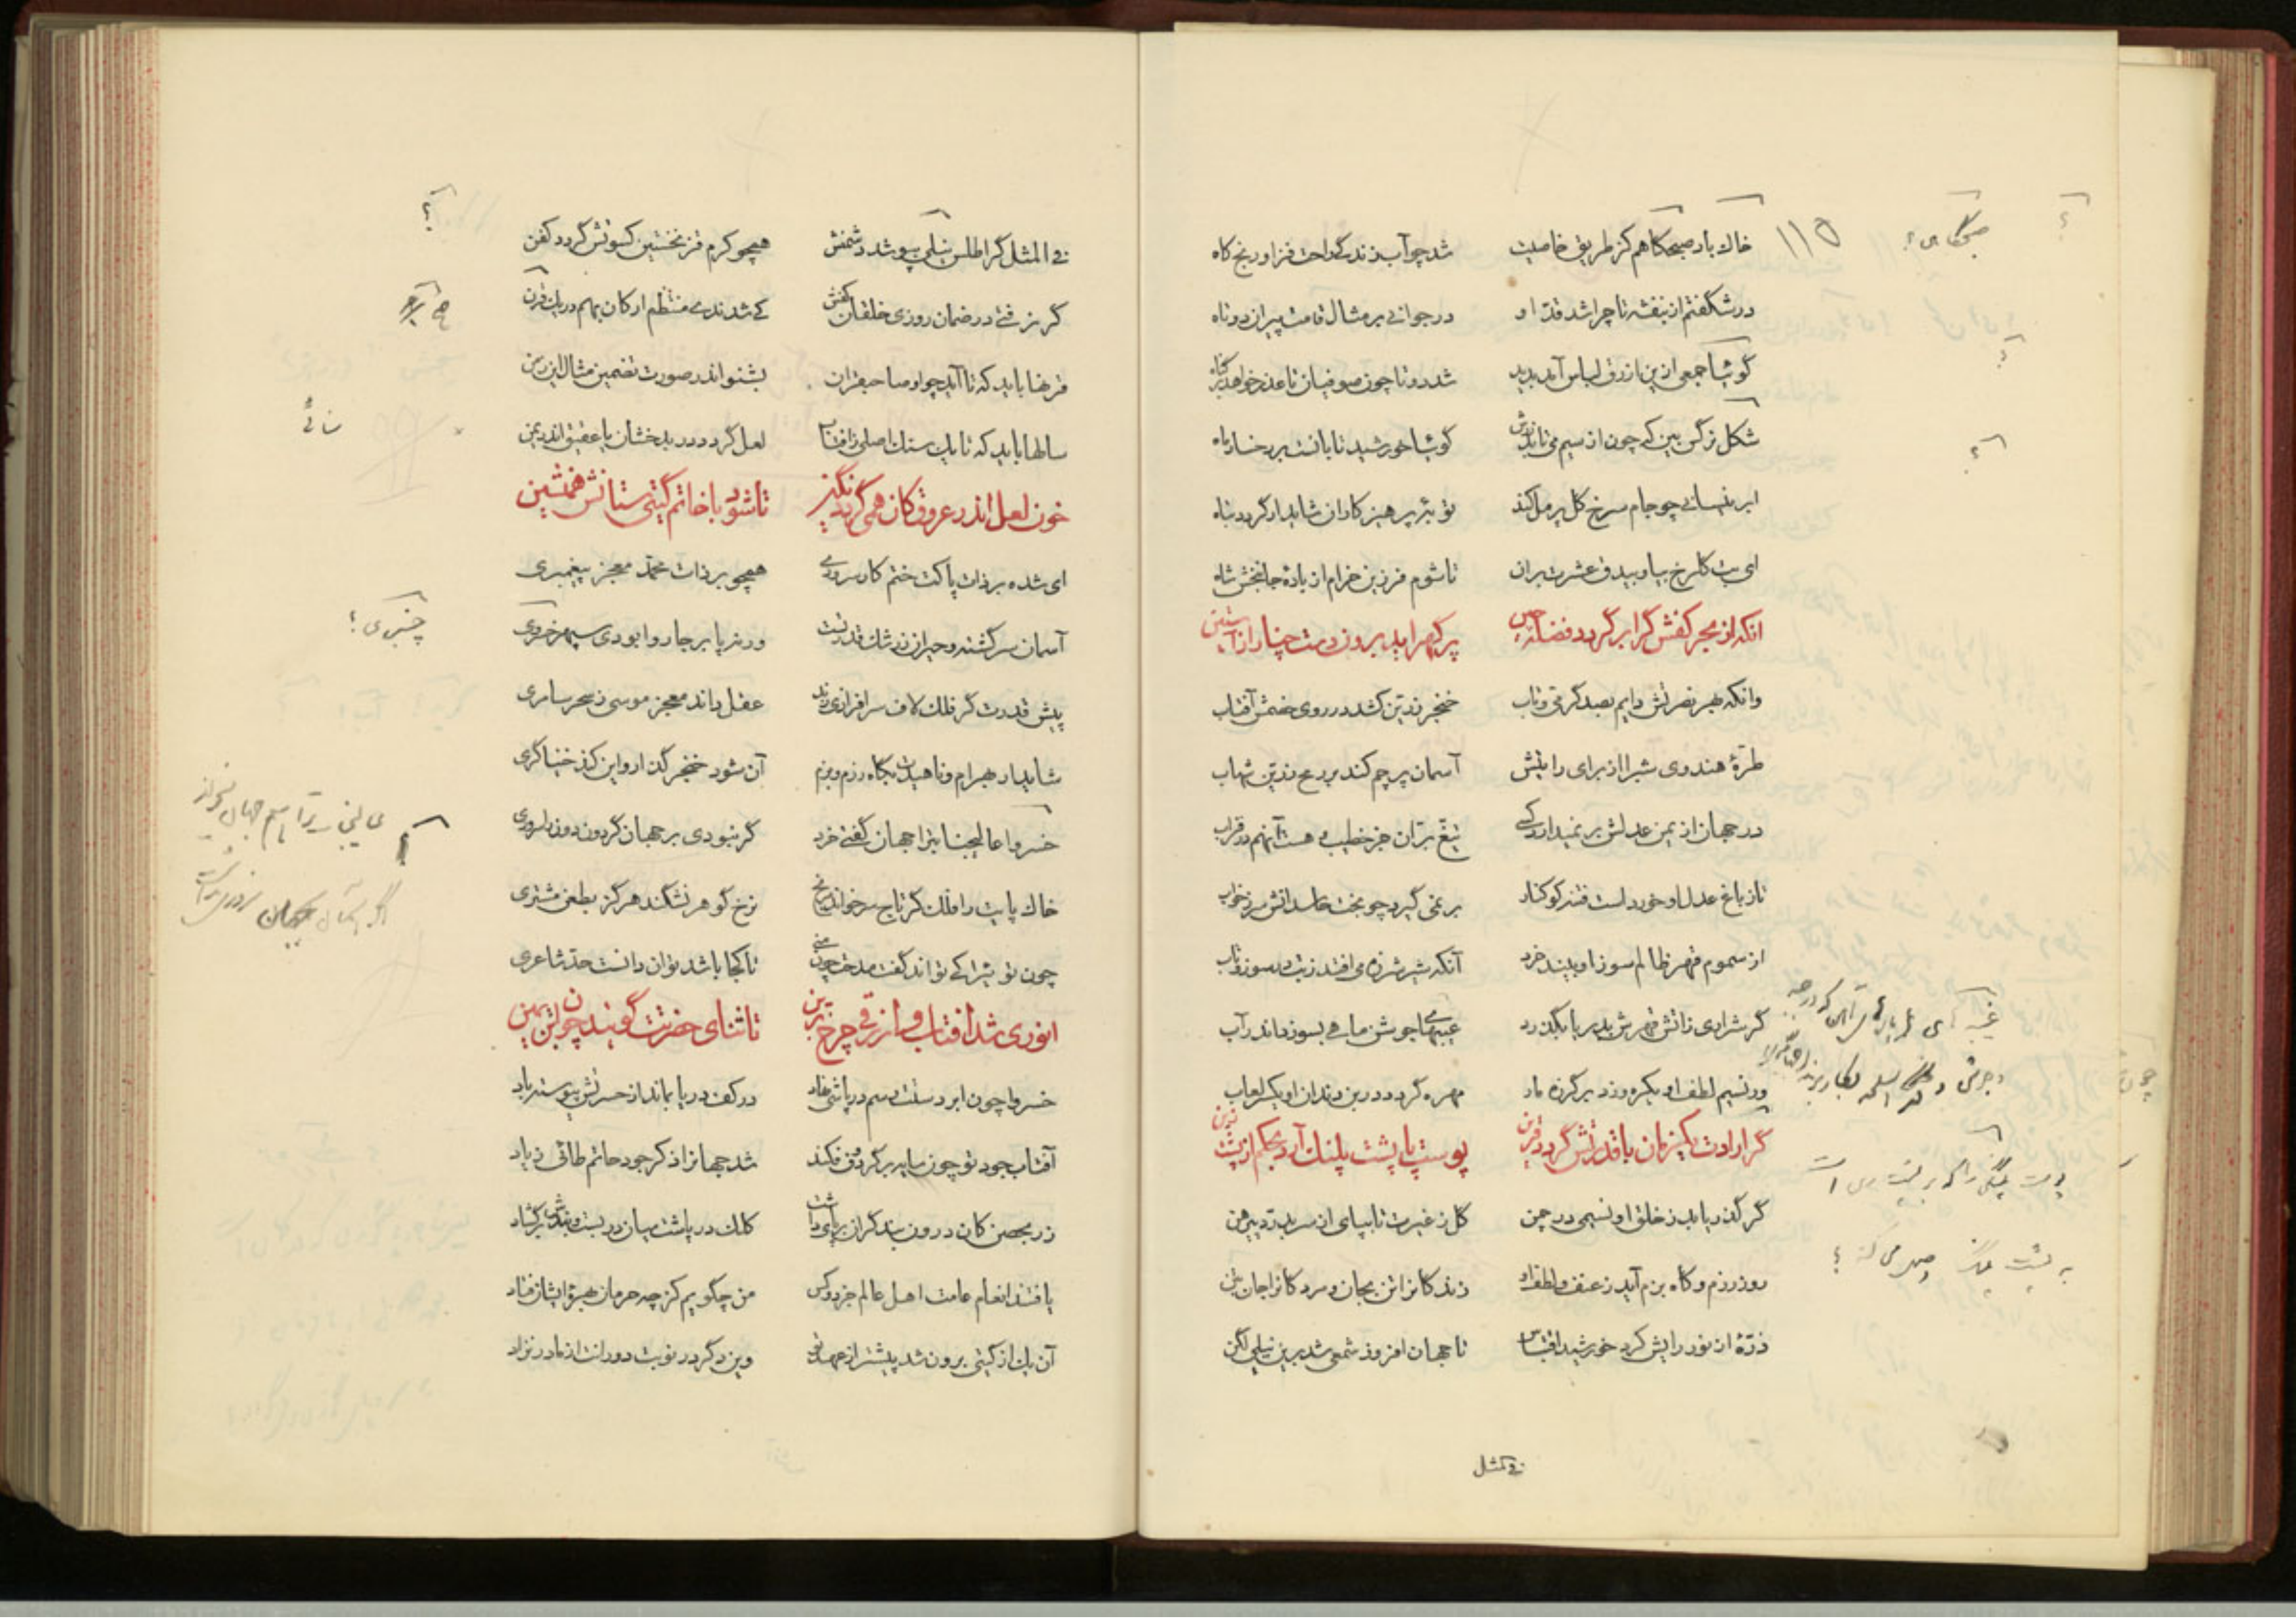 خاك باد صبحگاهم كز طريق خاصيت شد چو آب زندگی راحت فزا و رنج كاه
در شگفتم از بنفشه تا چرا شد قد او در جوانی بر مثال قامت پیران دوتاه
گوئیا جمعی ازین ازرق لباس آمد پدید شد دوتا چون صوفیان تا عذر خواهد از گناه
شكل نرگس بین كه چون از سیم می تابد زرش گوئیا خورشید تابانست بر رخسار ماه
ابر نیسانی چو جام سرخ گل پر مل كند توبۀ پرهیزكاران شاید ار گردد تباه
ای بت گلرخ بیا و بیدق عشرت بران تا شوم فرزین خرام از بادۀ جانبخش شاه
آنكه از بحر كفش گر ابر گردد فضله چین پر گهر آید برون دست چنار از آستین
وانكه بهر نصرتش دایم بصد گرمی و تاب خنجر زرین كشد در روی خصمش آفتاب
طرۀ هندوی شب را از برای رایتش آسمان پرچم كند بر رمح زرین شهاب
در جهان از یمن عدلش بر نمیدارد كسی تیغ بران جز خطیب و هست آنهم در قراب
تا ز باغ عدل او خوردست فتنه كوكنار بر نمی گیرد چو بخت حاسدانش سر ز خواب
از سموم قهر ظالم سوز او بیند خرد آنكه شیر شرزه می افتد ز تب در سوز و تاب
گر شراری زاتش قهرش بدریا بگذرد غیبهای جوشن ماهی بسوزاند در آب
ور نسیم لطف او یكره وزد بر گرزه مار مهره گردد در بن دندان او یكسر لعاب
گر ارادت یكزمان با قدرتش گردد قرین پوست پا پشت پلنگ آرد بحكم از پشت زین
گر گذر یابد ز خلق او نسیمی در چمن گل ز غیرت تا بپای از سر بدرد پیرهن
روز رزم و گاه بزم آید ز عنف و لطف او زندگانرا تن بجان و مردگانرا جان بتن
ذرۀ از نور رایش كرد خورشید اقتباس تا جهان افروز شمعی شد برین نیلی لگن
فی المثل
فی المثل گر اطلس نیلی بپوشد دشمنش همچو كرم قز نخستین كسوتش گردد كفن
گر نرفتی در ضمان روزی خلقان كفش كی شدندی منتظم اركان بهم در یك قرن
قرنها باید كه تا آید چو او صاحبقران بشنو اندر صورت تضمین مثال این ز من
سالها باید كه تا یك سنگ اصلی ز آفتاب لعل گردد در بدخشان یا عقیق اندر یمن
خون لعل اندر عروق كان همی گردد نگین تا شود با خاتم گیتی ستانش همنشین
ای شده بر ذات پاكت ختم كار سروری همچو بر ذات محمد معجز پیغمبری
آسمان سرگشته و حیران ز شان قدر تست ورنه پا بر جا روا بودی سپهر خسروی
پیش قدرت گر فلك لاف سرافرازی زند عقل داند معجز موسی ز سحر سامری
شاید ار بهرام و ناهیدت بگاه رزم و بزم آن شود خنجر گذار و این كند خنیاگری
خسروا عالیجنابتراجهان گفتی خرد گر نبودی بر جهان گردون دون را سروری
خاك پایت را فلك گر تاج سر خواند مرنج نرخ گوهر نشكند هرگز بطعن مشتری
چون تو ئیرا كی تواند گفت مدحت چون منی تا كجا باشد توان دانست حد شاعری
انوری شد آفتاب و ازرقی چرخ برین تا ثنای حضرتت گویند چون ابن یمین
خسروا چون ابر دستت رسم درپاشی نهاد در كف دریا بماند از حسرتش پیوسته باد
آفتاب جود تو چون سایه بر گردون فكند شد جهانرا ذكر جود حاتم طائی ز یاد
زر بحصن كان درون بند گران بر پای داشت كلك درپاشت میان در بست و بندش بر گشاد
یافتند انعام عامت اهل عالم جز دو كس من چگویم كز چه حرمان بهرۀ ایشان فتاد
آن یك از گیتی برون شد پیشتر از عهد تو وین دگر در نوبت دورانت از مادر نزاد
صبحگاهی ؟
۱۱۵
سنائی
چنبری ؟